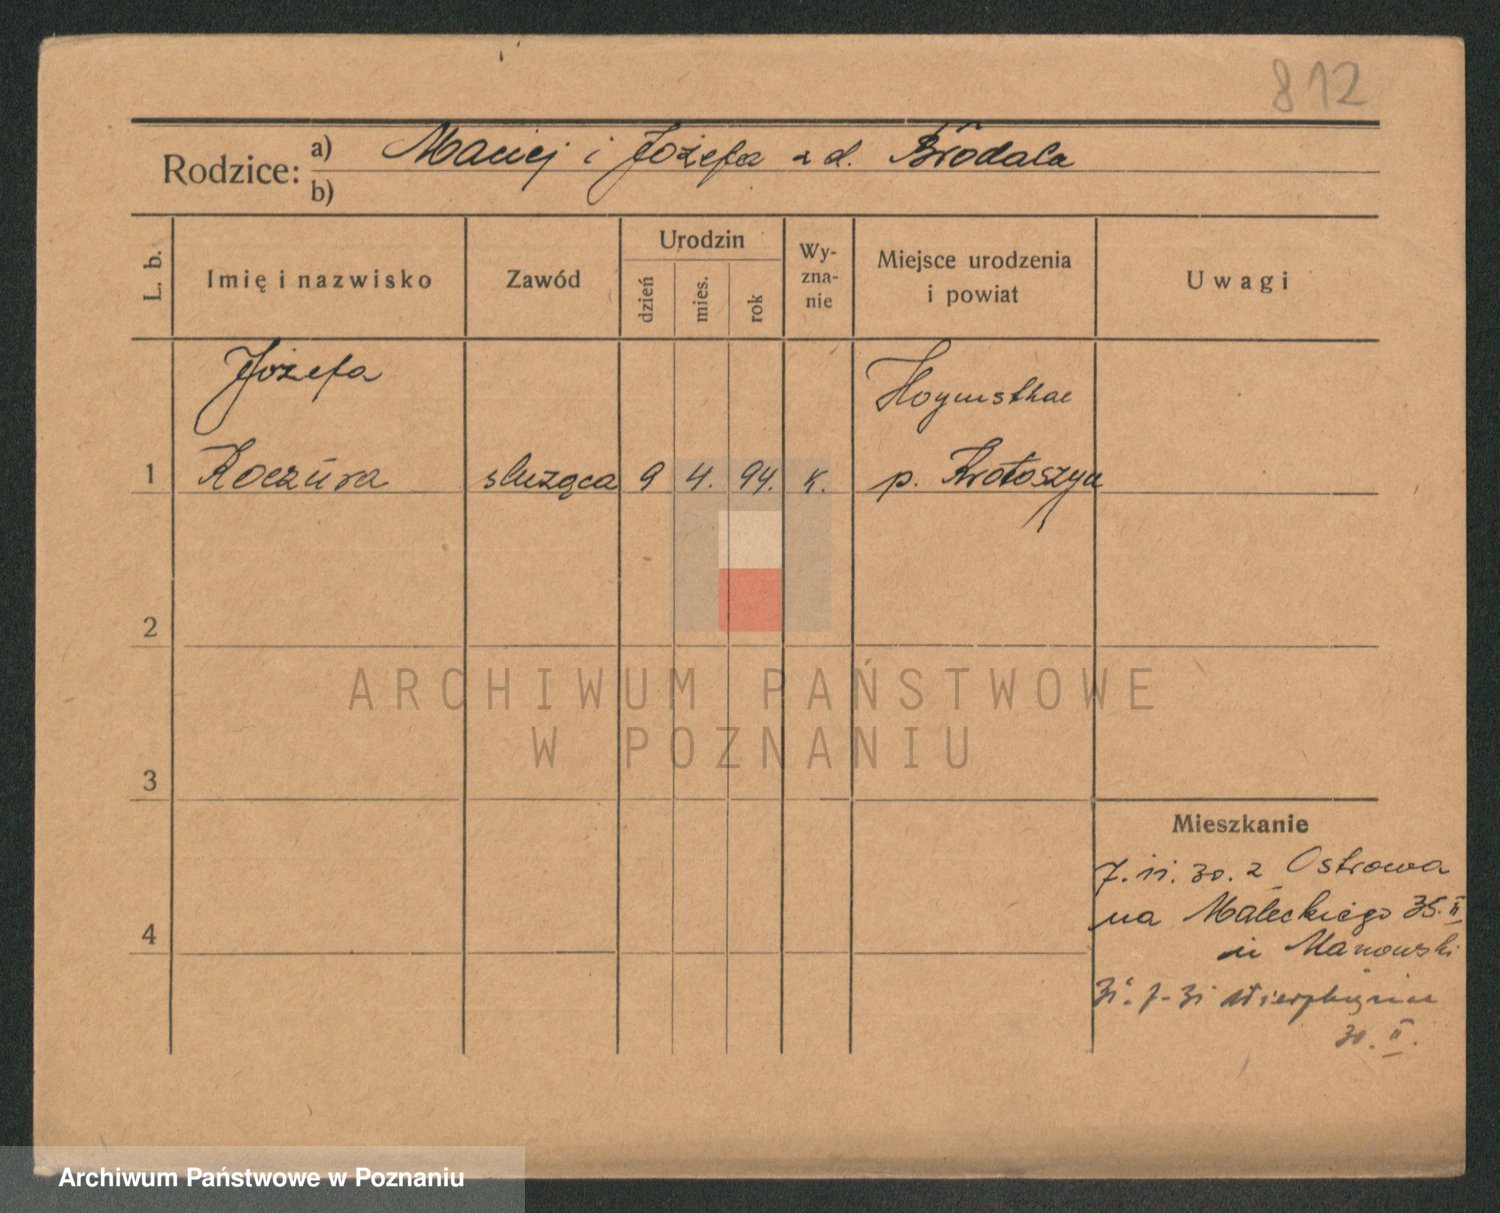 812
Rodzice: a) Maciej i Józefa z d. Brodala
b)
L. b.
Imię i nazwisko
Zawód
Urodzin
dzień
mies.
rok
Wy-
zna-
nie
Miejsce urodzenia
i powiat
Uwagi
Józefa
Hoymsthal
1 Koczura służąca 9 4. 94. k. p. Krotoszyn
2
ARCHIWUM PAŃSTWOWE
W POZNANIU
3
Mieszkanie
7. 11. 30. z Ostrowa
na Małeckiego 35. II
4
Manowski
30. II.
Archiwum Państwowe w Poznaniu